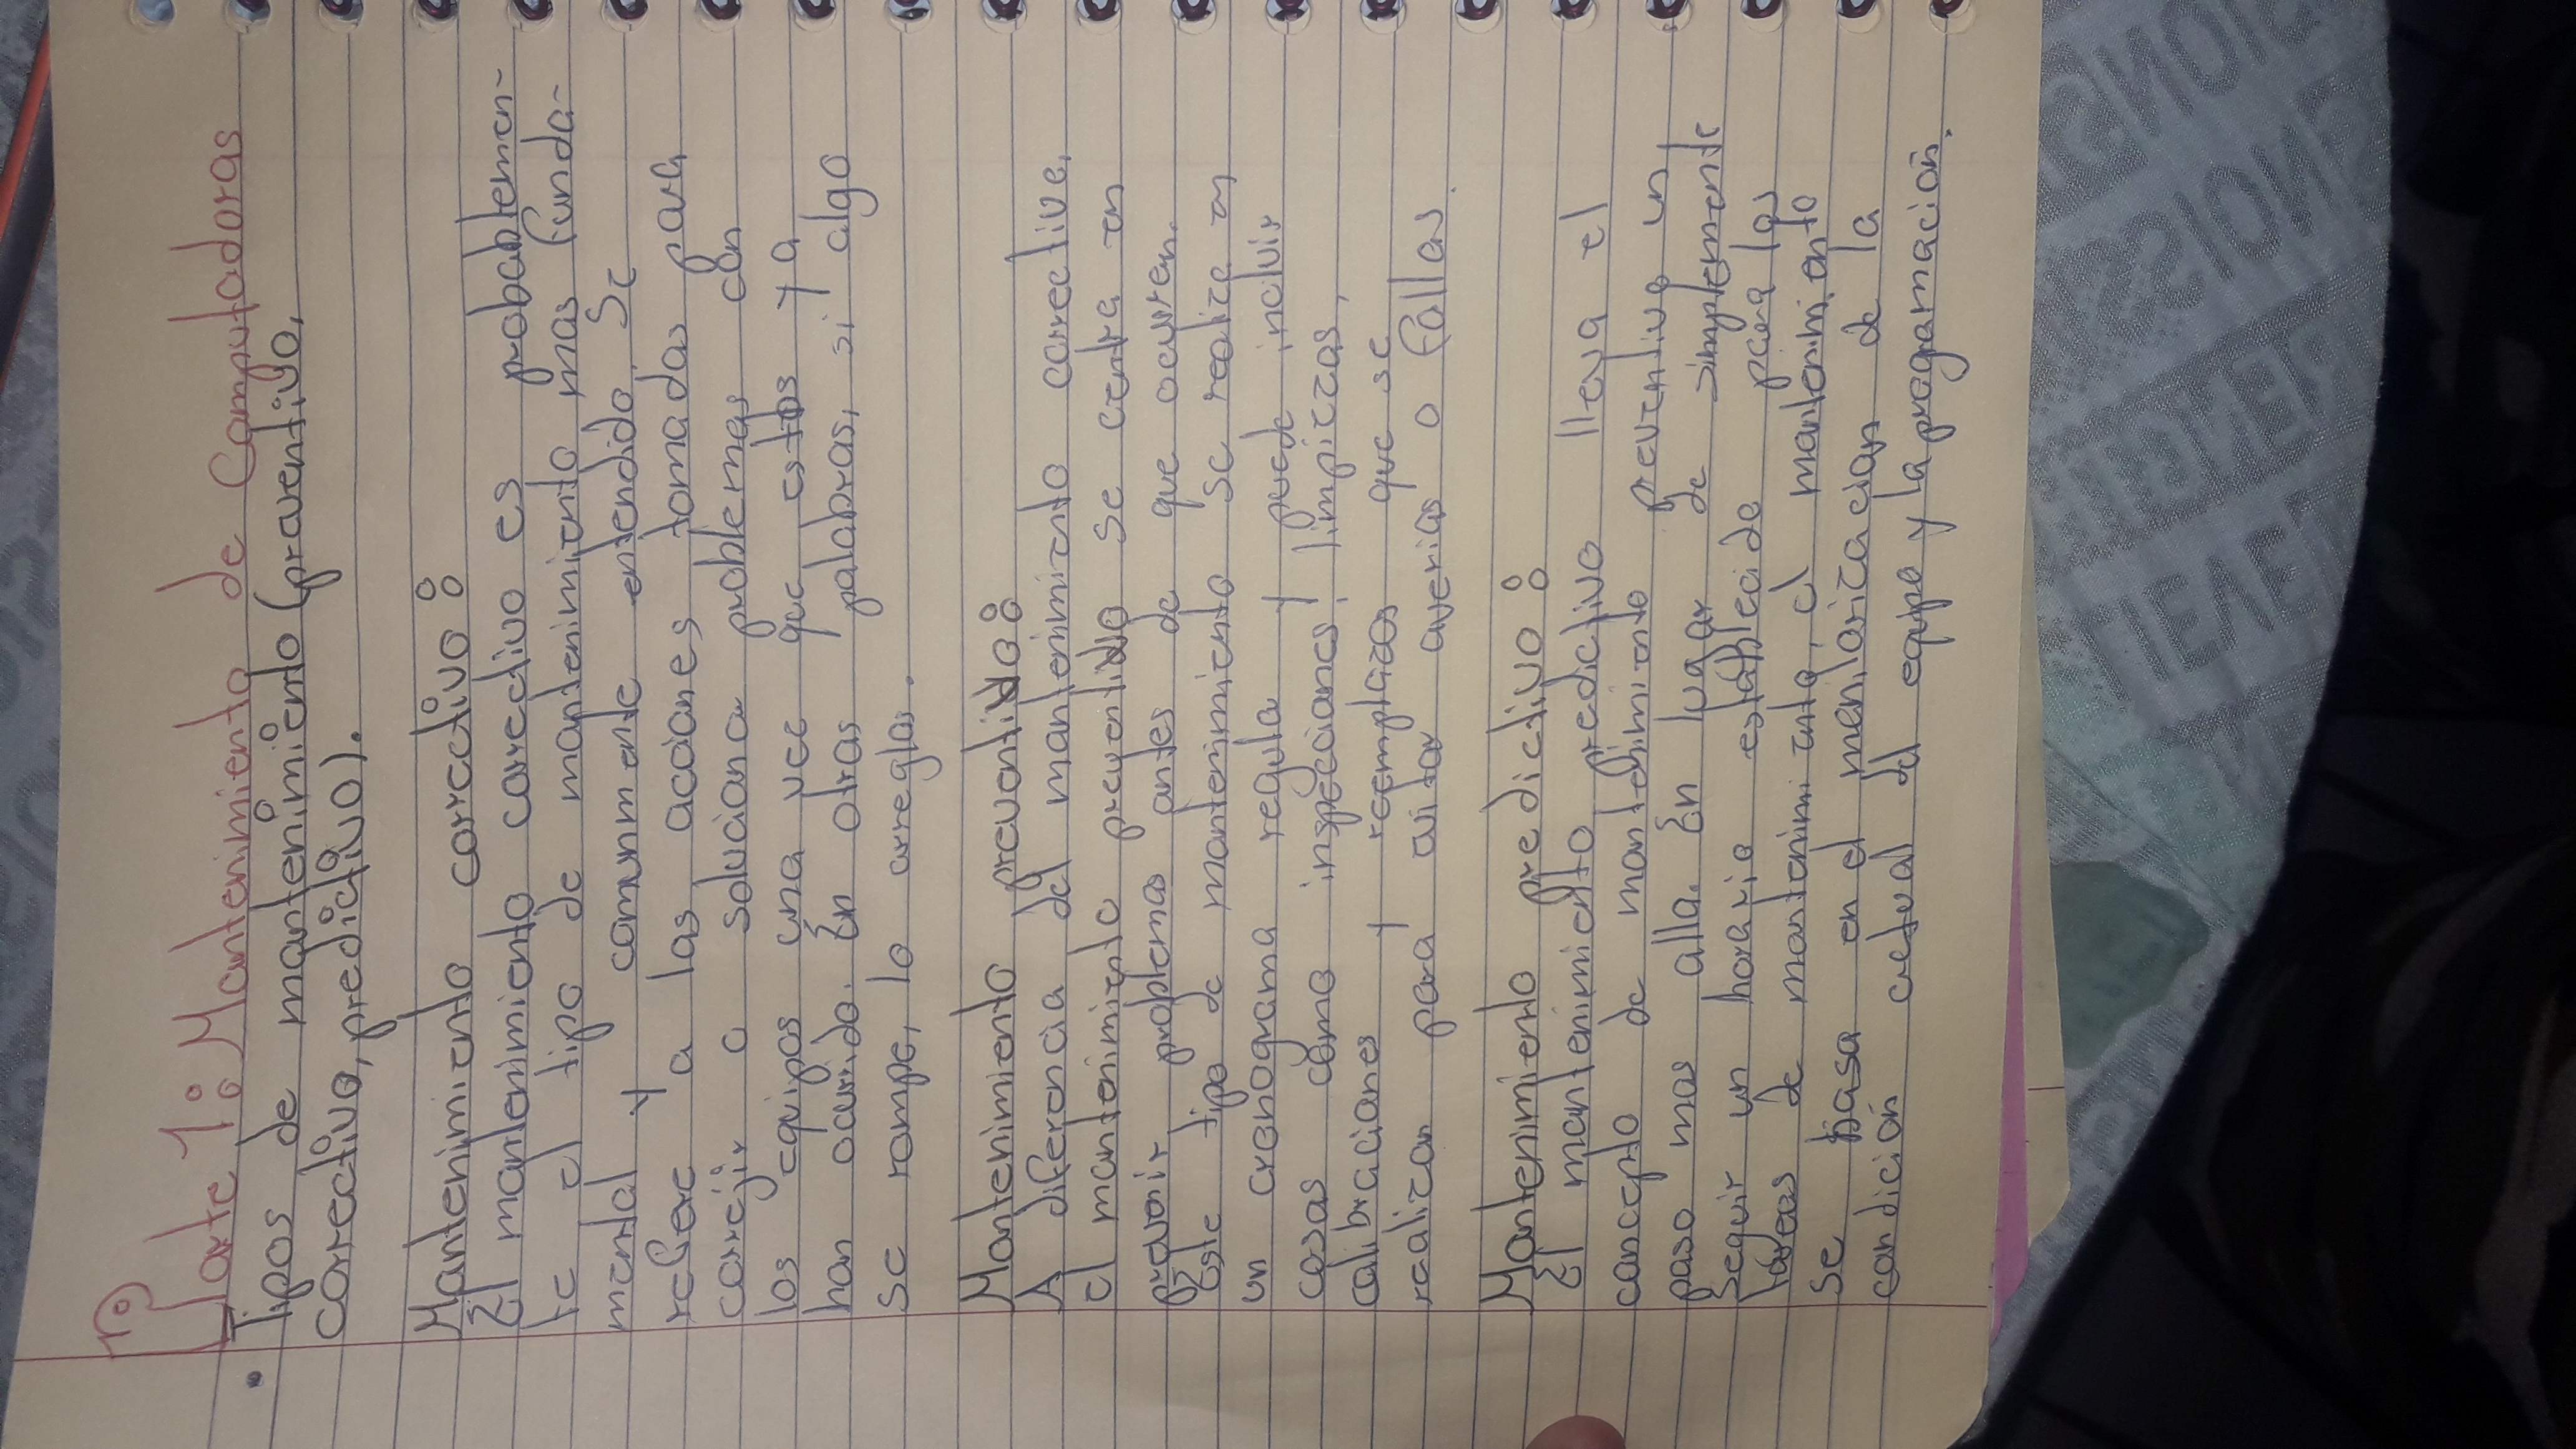 Parte 1: Mantenimiento de Computadoras
• Tipos de mantenimiento (preventivo,
correctivo, predictivo).
Mantenimiento correctivo:
El mantenimiento corectivo es probablemen-
te el tipo de mantenimiento mas funda-
mental y comunmente entendido. Se
refiere a las acciones tomadas para
correjir o soluciona problemas con
los equipos una vez que estos ya
han ocurrido. En otras palabras, si algo
se rompe, lo arreglas.
Mantenimiento preventivo:
A diferencia del mantenimiento correctivo,
el mantenimiento preventivo se centra en
prevenir problemas antes de que ocurren.
Este tipo de mantenimiento se realiza en
un cronograma regula y puede incluir
cosas como inspecciones, limpiezas,
calibraciones y reemplazos que se
realizan para evitar averias o fallas.
Mantenimiento predictivo:
El mantenimiento predictivo lleva el
concepto de mantenimiento preventivo un
paso mas alla. En lugar de simplemente
seguir un horario establecido para las
tareas de mantenimiento, el mantenimiento
se basa en el menitorizacion de la
condición actual del equipo y la programación.
TIEVE SIGNS